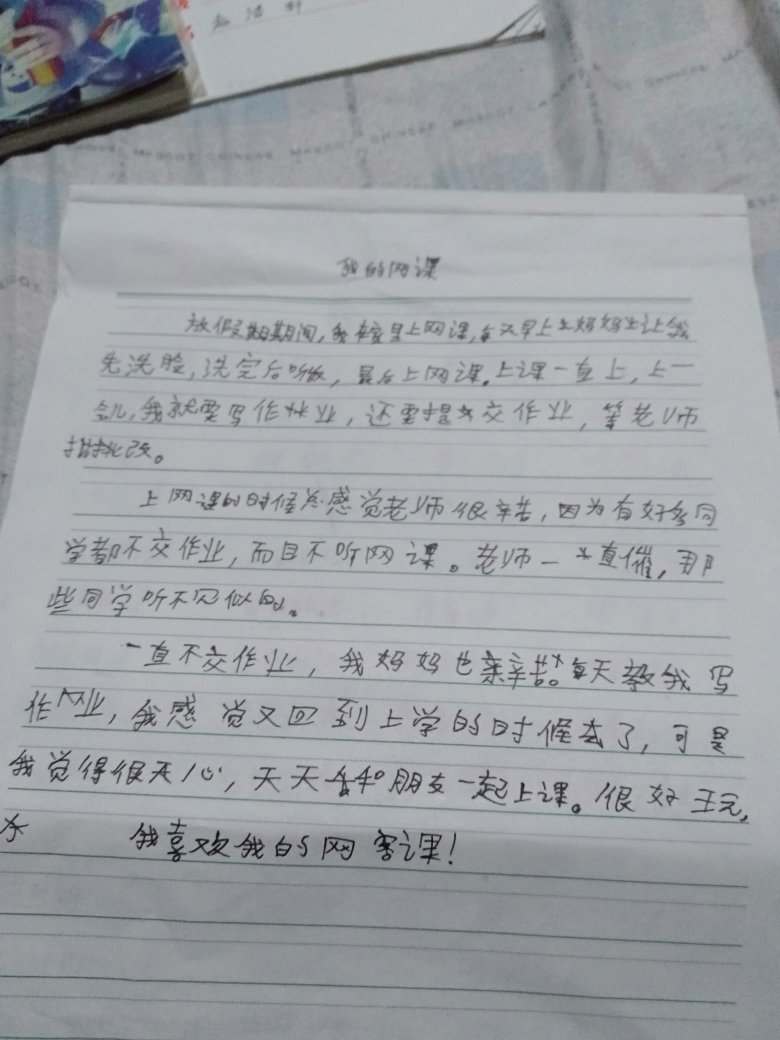 我的网课
放假期期间，我在家里上网课，每天早上妈妈让我
先洗脸，洗完后听，最后上网课，上课一直上，上一
会儿，我就要写作业，还要提交作业，等老师
批改。
上网课的时候总感觉老师很辛苦，因为有好多同
学都不交作业，而且不听网课。老师一直催，那
些同学听不见似的。
一直不交作业，我妈妈也辛苦。每天教我写
作业，我感觉又回到上学的时候去了，可是
我觉得很开心，天天和朋友一起上课。很好玩，
我喜欢我的网课！